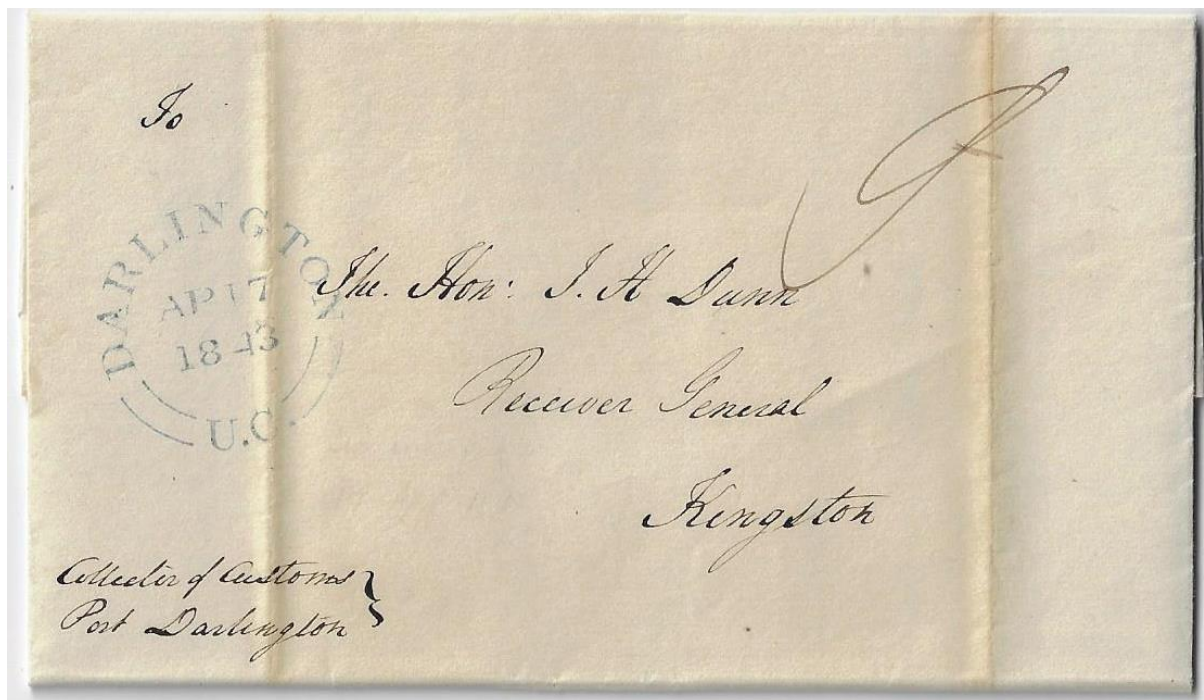 To
DARLINGTON
AP 17
1843
U.C.
The. Hon: J. H Dunn
Receiver General
Kingston
Collector of Customs
Port Darlington